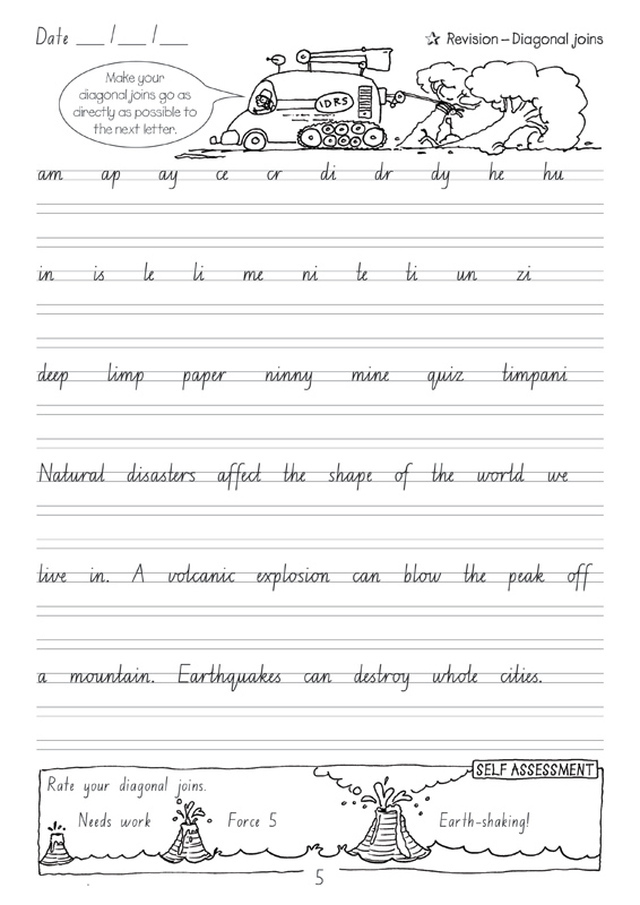 Date ___ / ___ / ___
☆ Revision – Diagonal joins
Make your
diagonal joins go as
directly as possible to
the next letter.
IDRS
am ap ay ce cr di dr dy he hu
in is le li me ni te ti un zi
deep limp paper ninny mine quiz timpani
Natural disasters affect the shape of the world we
live in. A volcanic explosion can blow the peak off
a mountain. Earthquakes can destroy whole cities.
SELF ASSESSMENT
Rate your diagonal joins.
Needs work Force 5 Earth-shaking!
5